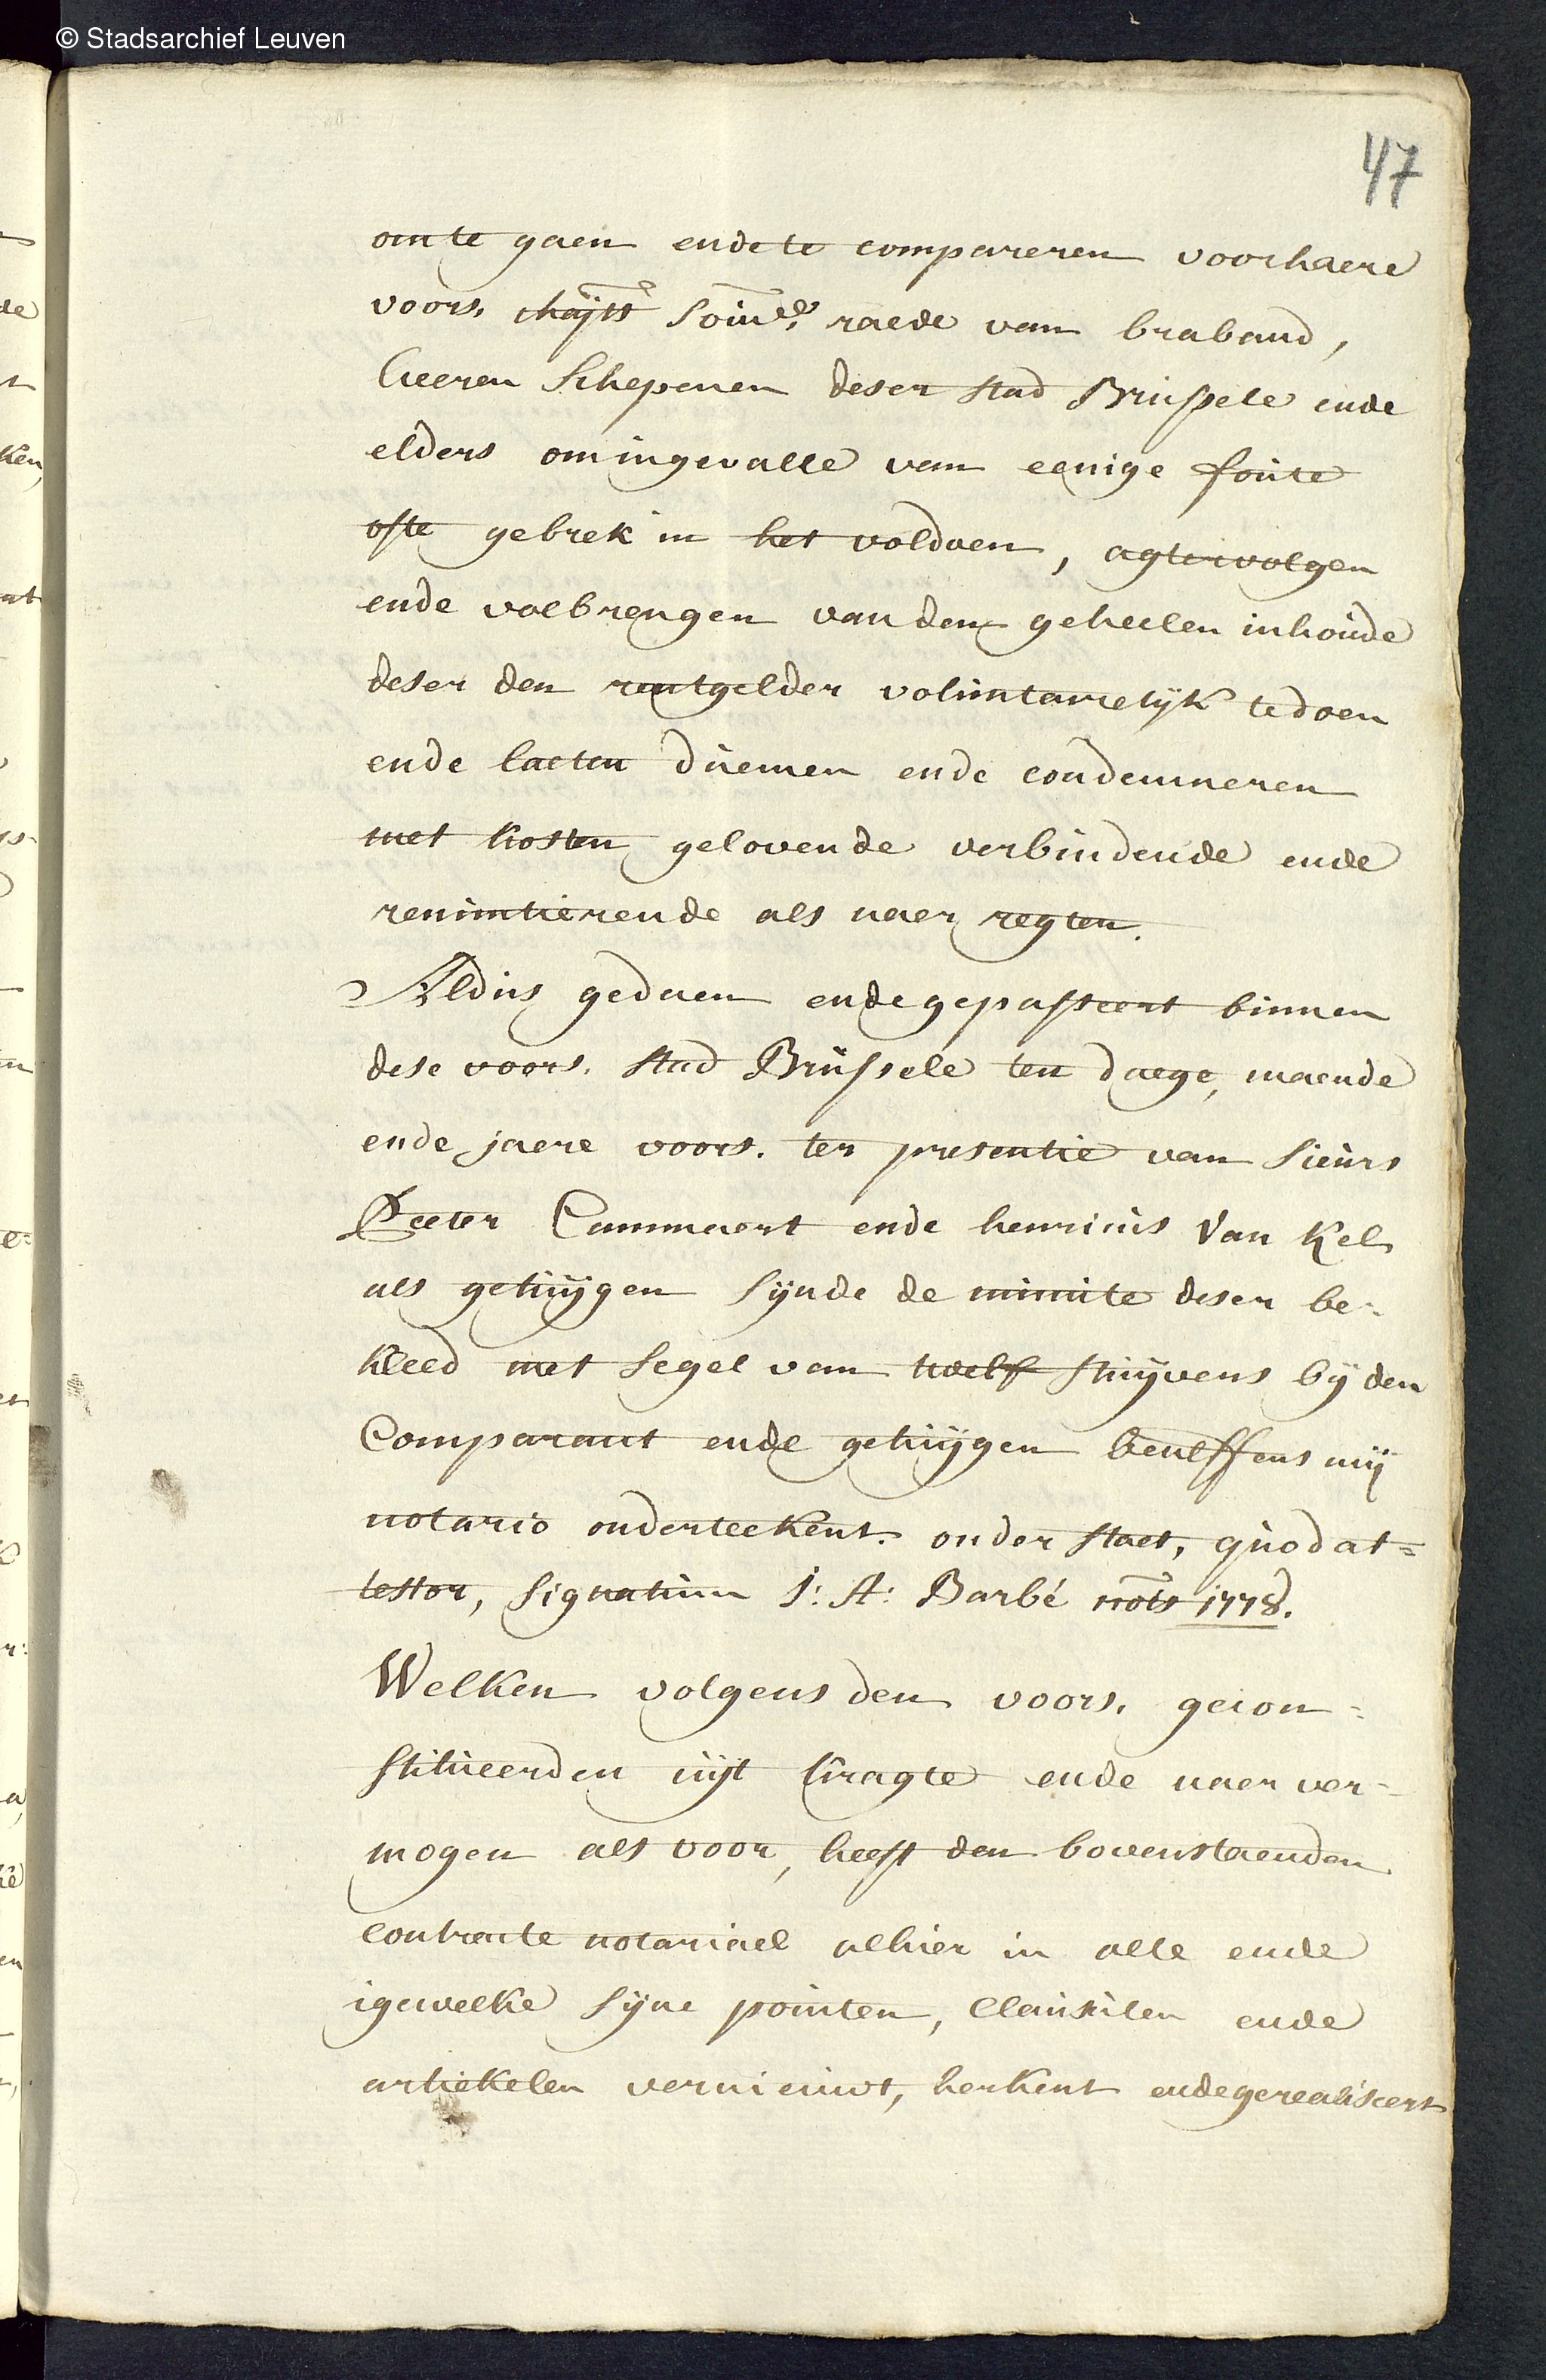 © Stadsarchief Leuven
47
om te gaen ende te compareren voor haere
voors. Maÿts Souvs. raede van braband,
heeren Schepenen deser stad Brussele ende
elders om ingevalle van eenige foute
ofte gebrek in het voldoen, agtervolgen
ende volbrengen van den geheelen inhoude
deser den rentgelder voluntairelÿk te doen
ende laeten duemen ende condemneren
met kosten gelovende verbindende ende
renuntierende als naer regten.
Aldus gedaen ende gepasseert binnen
dese voors. stad Brussele ten daege, maende
ende jaere voors. ter presentie van Sieurs
Peeter Cammaert ende henricus Van Kel
als getuÿgen sÿnde de minute deser be-
kleed met segel van twelf stuÿvers bÿ den
Comparant ende getuÿgen beneffens mÿ
notario onderteekent. onder staet, quod at=
testor, signatum J: A: Barbé nots 1778.
Welken volgens den voors. gecon=
stitueerden uÿt kragte ende naer ver-
mogen als voor, heeft den bovenstaenden
contracte notariael alhier in alle ende
igewelke sÿne pointen, Clausulen ende
artiekelen vernieuwt, herkent ende gerealiseert